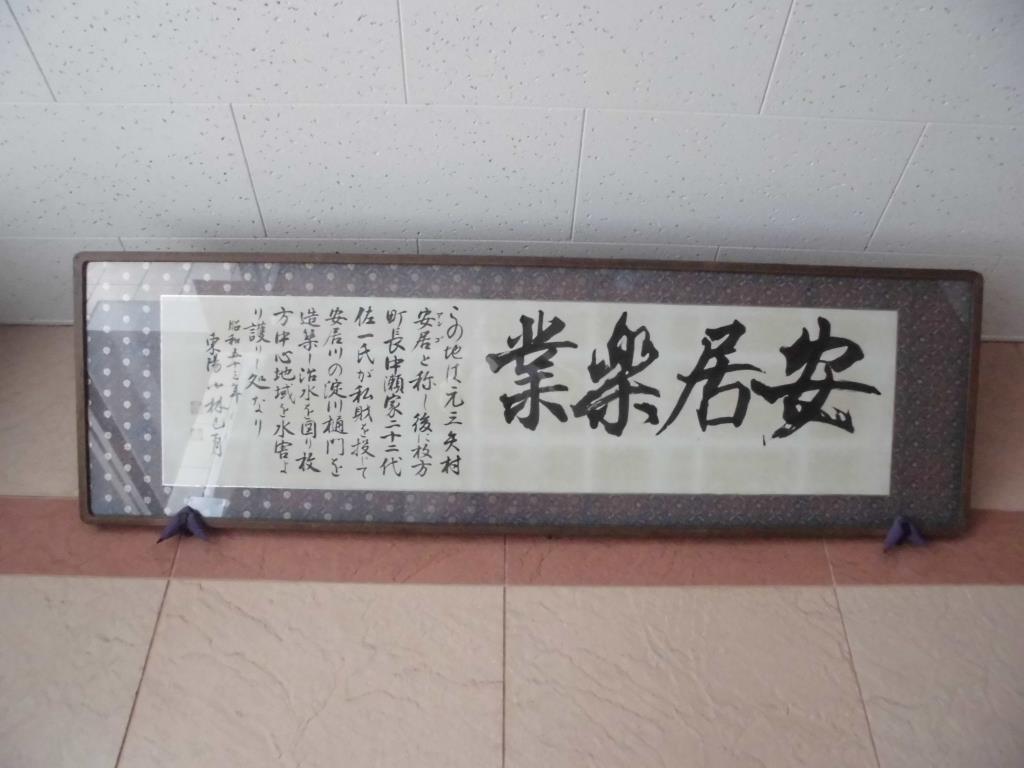 安居樂業
この地は元三矢村
安居と称し後に枚方
アンゴ
町長中瀬家二十二代
佐一氏が私財を投じて
安居川の淀川樋門を
造築し治水を図り枚
方中心地域を水害よ
り護りし処なり
昭和五十三年
東陽 小林